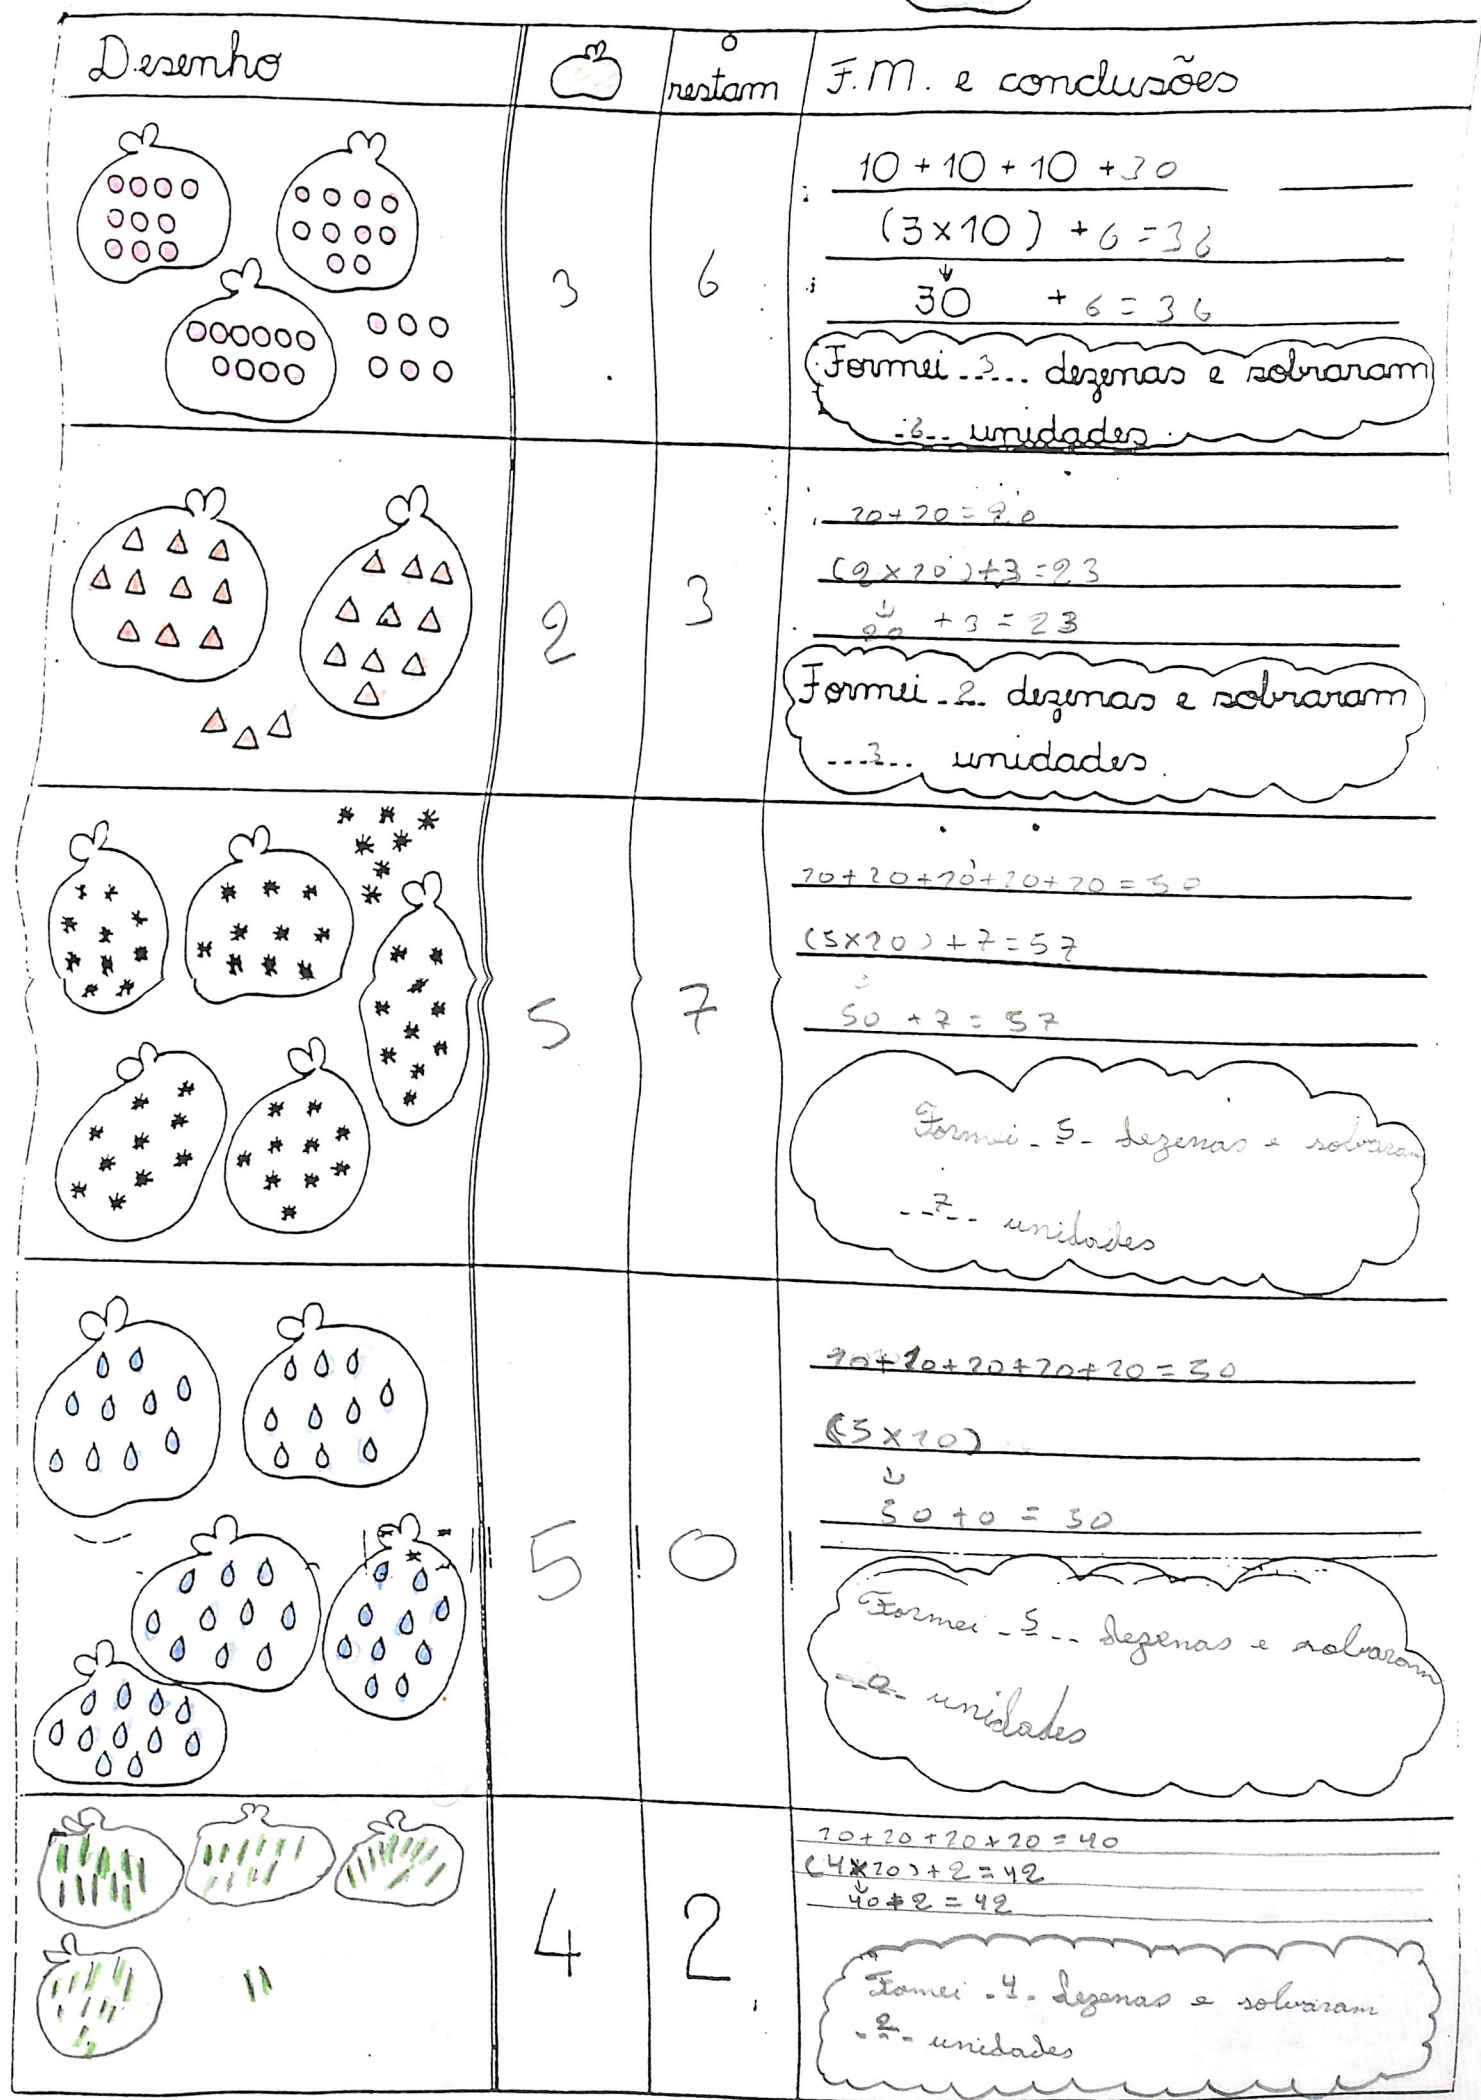 Desenho
restam
F.M. e conclusões
10 + 10 + 10 + 30
(3×10) + 6 = 36
3 6
30 + 6 = 36
Formei 3 dezenas e sobraram
6 unidades.
10 + 10 = 20
(2 × 10) + 3 = 23
2 3
20 + 3 = 23
Formei 2 dezenas e sobraram
3 unidades.
10 + 10 + 10 + 10 + 10 = 50
(5×10) + 7 = 57
5 7
50 + 7 = 57
Formei 5 dezenas e sobraram
7 unidades
10 + 10 + 10 + 10 + 10 = 50
(5×10)
50 + 0 = 50
5 0
Formei 5 dezenas e sobraram
0 unidades
10 + 10 + 10 + 10 = 40
(4×10) + 2 = 42
40 + 2 = 42
4 2
Fomei 4 dezenas e sobraram
2 unidades